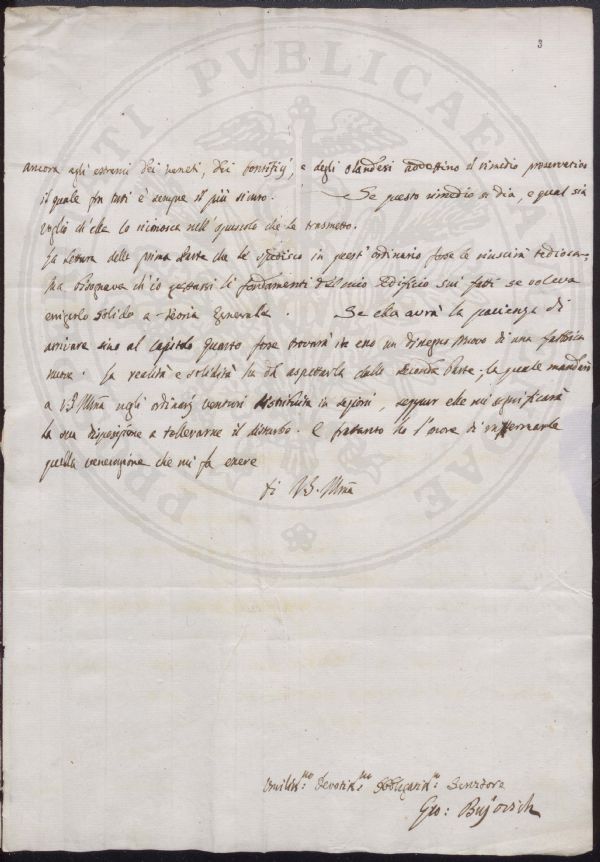 3
ancora agli estremi dei Veneti, dei Pontificj, e degli Olandesi addottino il rimedio preservativo
il quale fra tutti è sempre il più sicuro. Se questo rimedio si dia, e qual sia
voglio ch'ella lo riconosca nell'opuscolo che le trasmetto.
La lettura della prima Parte che le spedisco in quest'ordinario forse le riuscirà tediosa,
ma bisognava ch'io gettassi li fondamenti del mio Edificio sui fatti se voleva
erigerlo solido a Teoria Generale. Se ella avrà la pacienza di
arrivare sino al capitolo quarto forse troverà in esso un disegno nuovo di una fabbrica
nuova. La realità e solidità ha da aspettarla dalla seconda Parte, la quale manderò
a VS. Illma negli ordinarj venturi distribuita in lezioni, seppur ella mi significarà
la sua disposizione a tollerarne il disturbo. E frattanto ho l'onore di
quella venerazione che mi fa essere
di VS. Illma
Umiliss.mo Devotiss.mo Obbligatiss.mo Servidore
Gio: Bujovich
PRO PVBLICAE